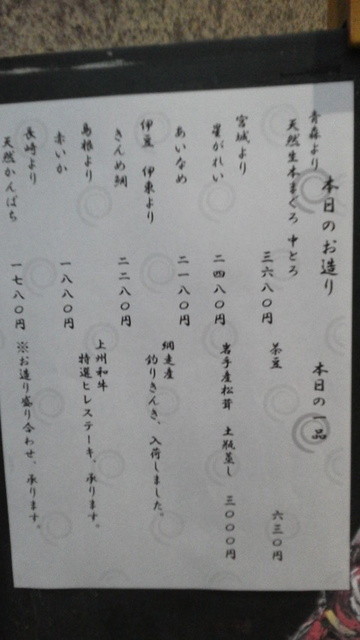 本日のお造り
青森より
天然生本まぐろ 中とろ 三六八〇円
宮城より
星がれい 二四八〇円
あいなめ 二一八〇円
伊豆 伊東より
きんめ鯛 二二八〇円
島根より
赤いか 一八八〇円
長崎より
天然かんぱち 一七八〇円
本日の一品
茶豆 六三〇円
岩手産松茸 土瓶蒸し 三〇〇〇円
網走産
釣りきんき、入荷しました。
上州和牛
特選ヒレステーキ、承ります。
※お造り盛り合わせ、承ります。